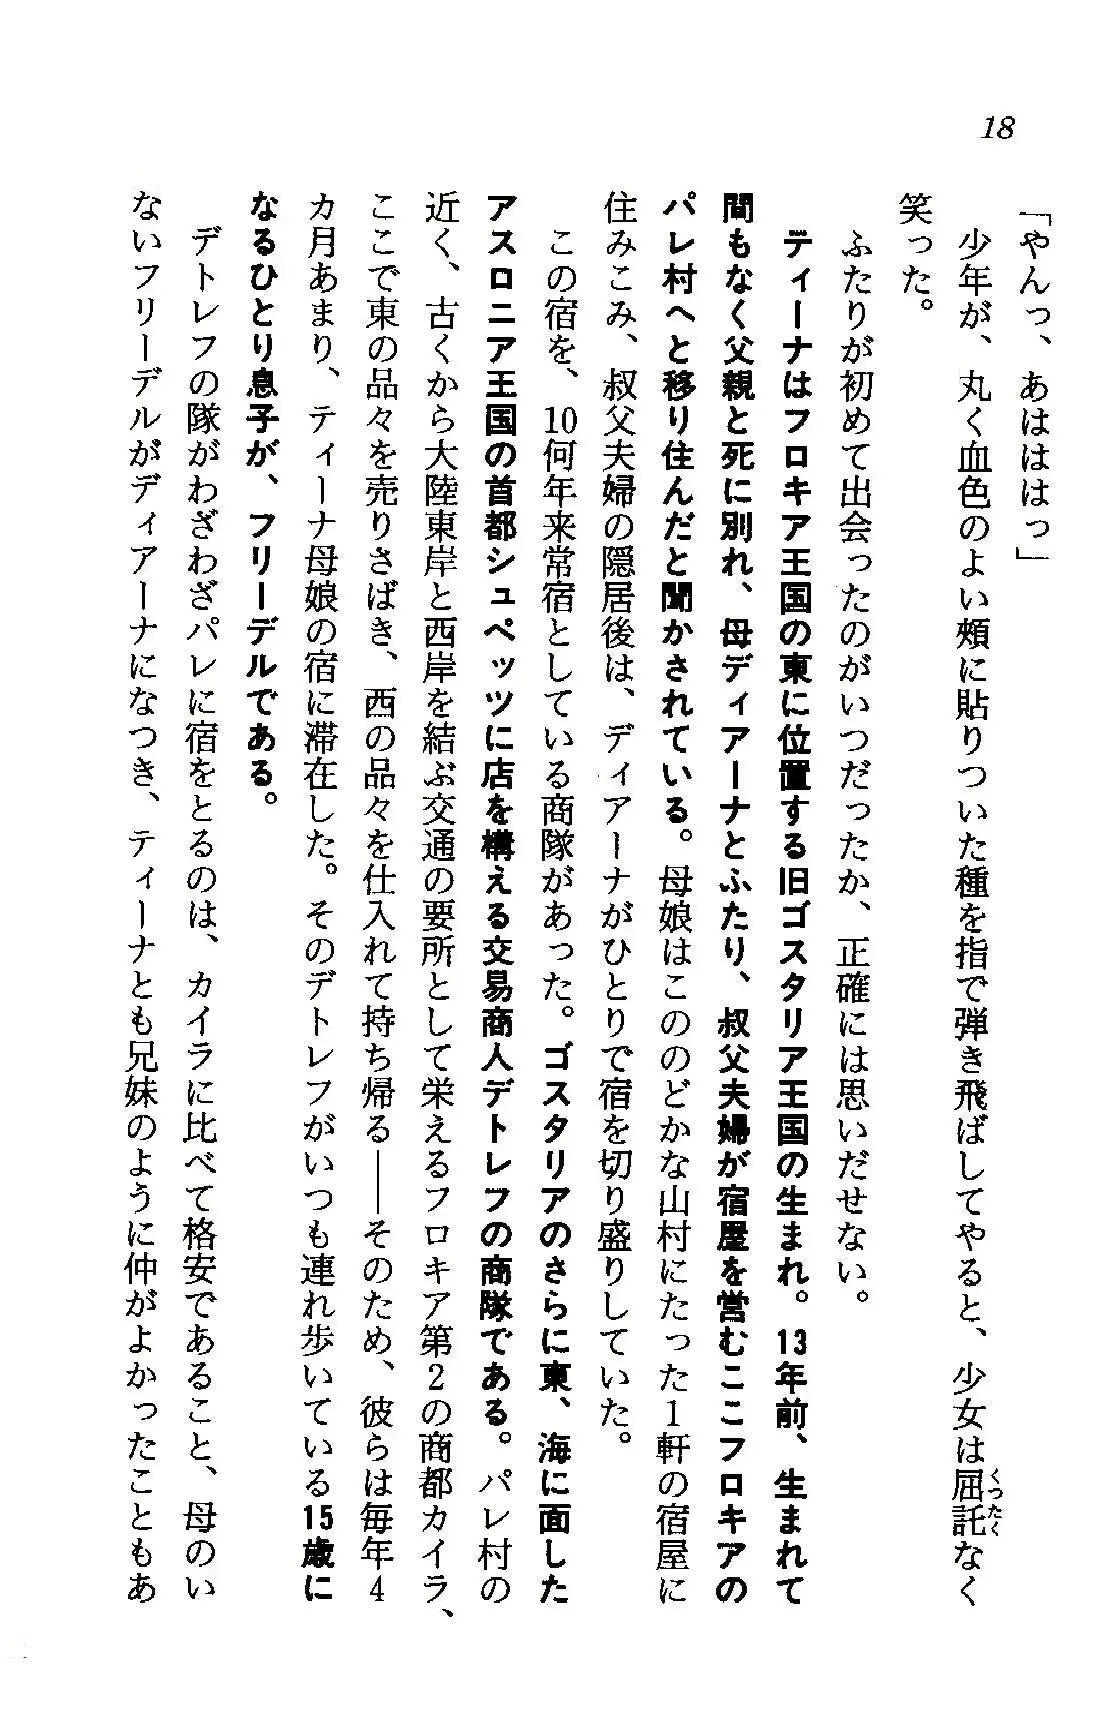 18
「やんっ、あはははっ」
　少年が、丸く血色のよい頰に貼りついた種を指で弾き飛ばしてやると、少女は屈託なく
笑った。
　ふたりが初めて出会ったのがいつだったか、正確には思いだせない。
　ティーナはフロキア王国の東に位置する旧ゴスタリア王国の生まれ。13年前、生まれて
間もなく父親と死に別れ、母ディアーナとふたり、叔父夫婦が宿屋を営むここフロキアの
パレ村へと移り住んだと聞かされている。母娘はこののどかな山村にたった1軒の宿屋に
住みこみ、叔父夫婦の隠居後は、ディアーナがひとりで宿を切り盛りしていた。
　この宿を、10何年来常宿としている商隊があった。ゴスタリアのさらに東、海に面した
アスロニア王国の首都シュペッツに店を構える交易商人デトレフの商隊である。パレ村の
近く、古くから大陸東岸と西岸を結ぶ交通の要所として栄えるフロキア第2の商都カイラ、
ここで東の品々を売りさばき、西の品々を仕入れて持ち帰る――そのため、彼らは毎年4
カ月あまり、ティーナ母娘の宿に滞在した。そのデトレフがいつも連れ歩いている15歳に
なるひとり息子が、フリーデルである。
　デトレフの隊がわざわざパレに宿をとるのは、カイラに比べて格安であること、母のい
ないフリーデルがディアーナになつき、ティーナとも兄妹のように仲がよかったこともあ